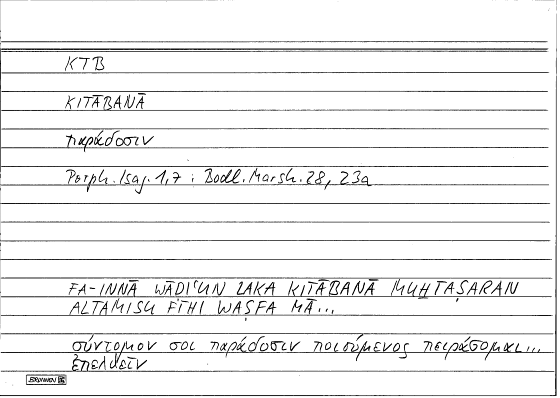 KTB
KITĀBANĀ
παράδοσιν
Porph. Isag. 1,7 : Bodl. Marsh. 28, 23a
FA-INNĀ WĀḌIʿUN LAKA KITĀBANĀ MUḪTAṢARAN
ALTAMISU FĪHI WAṢFA MĀ...
σύντομόν σοι παράδοσιν ποιούμενος πειράσομαι...
ἐπελθεῖν
BRUNNEN